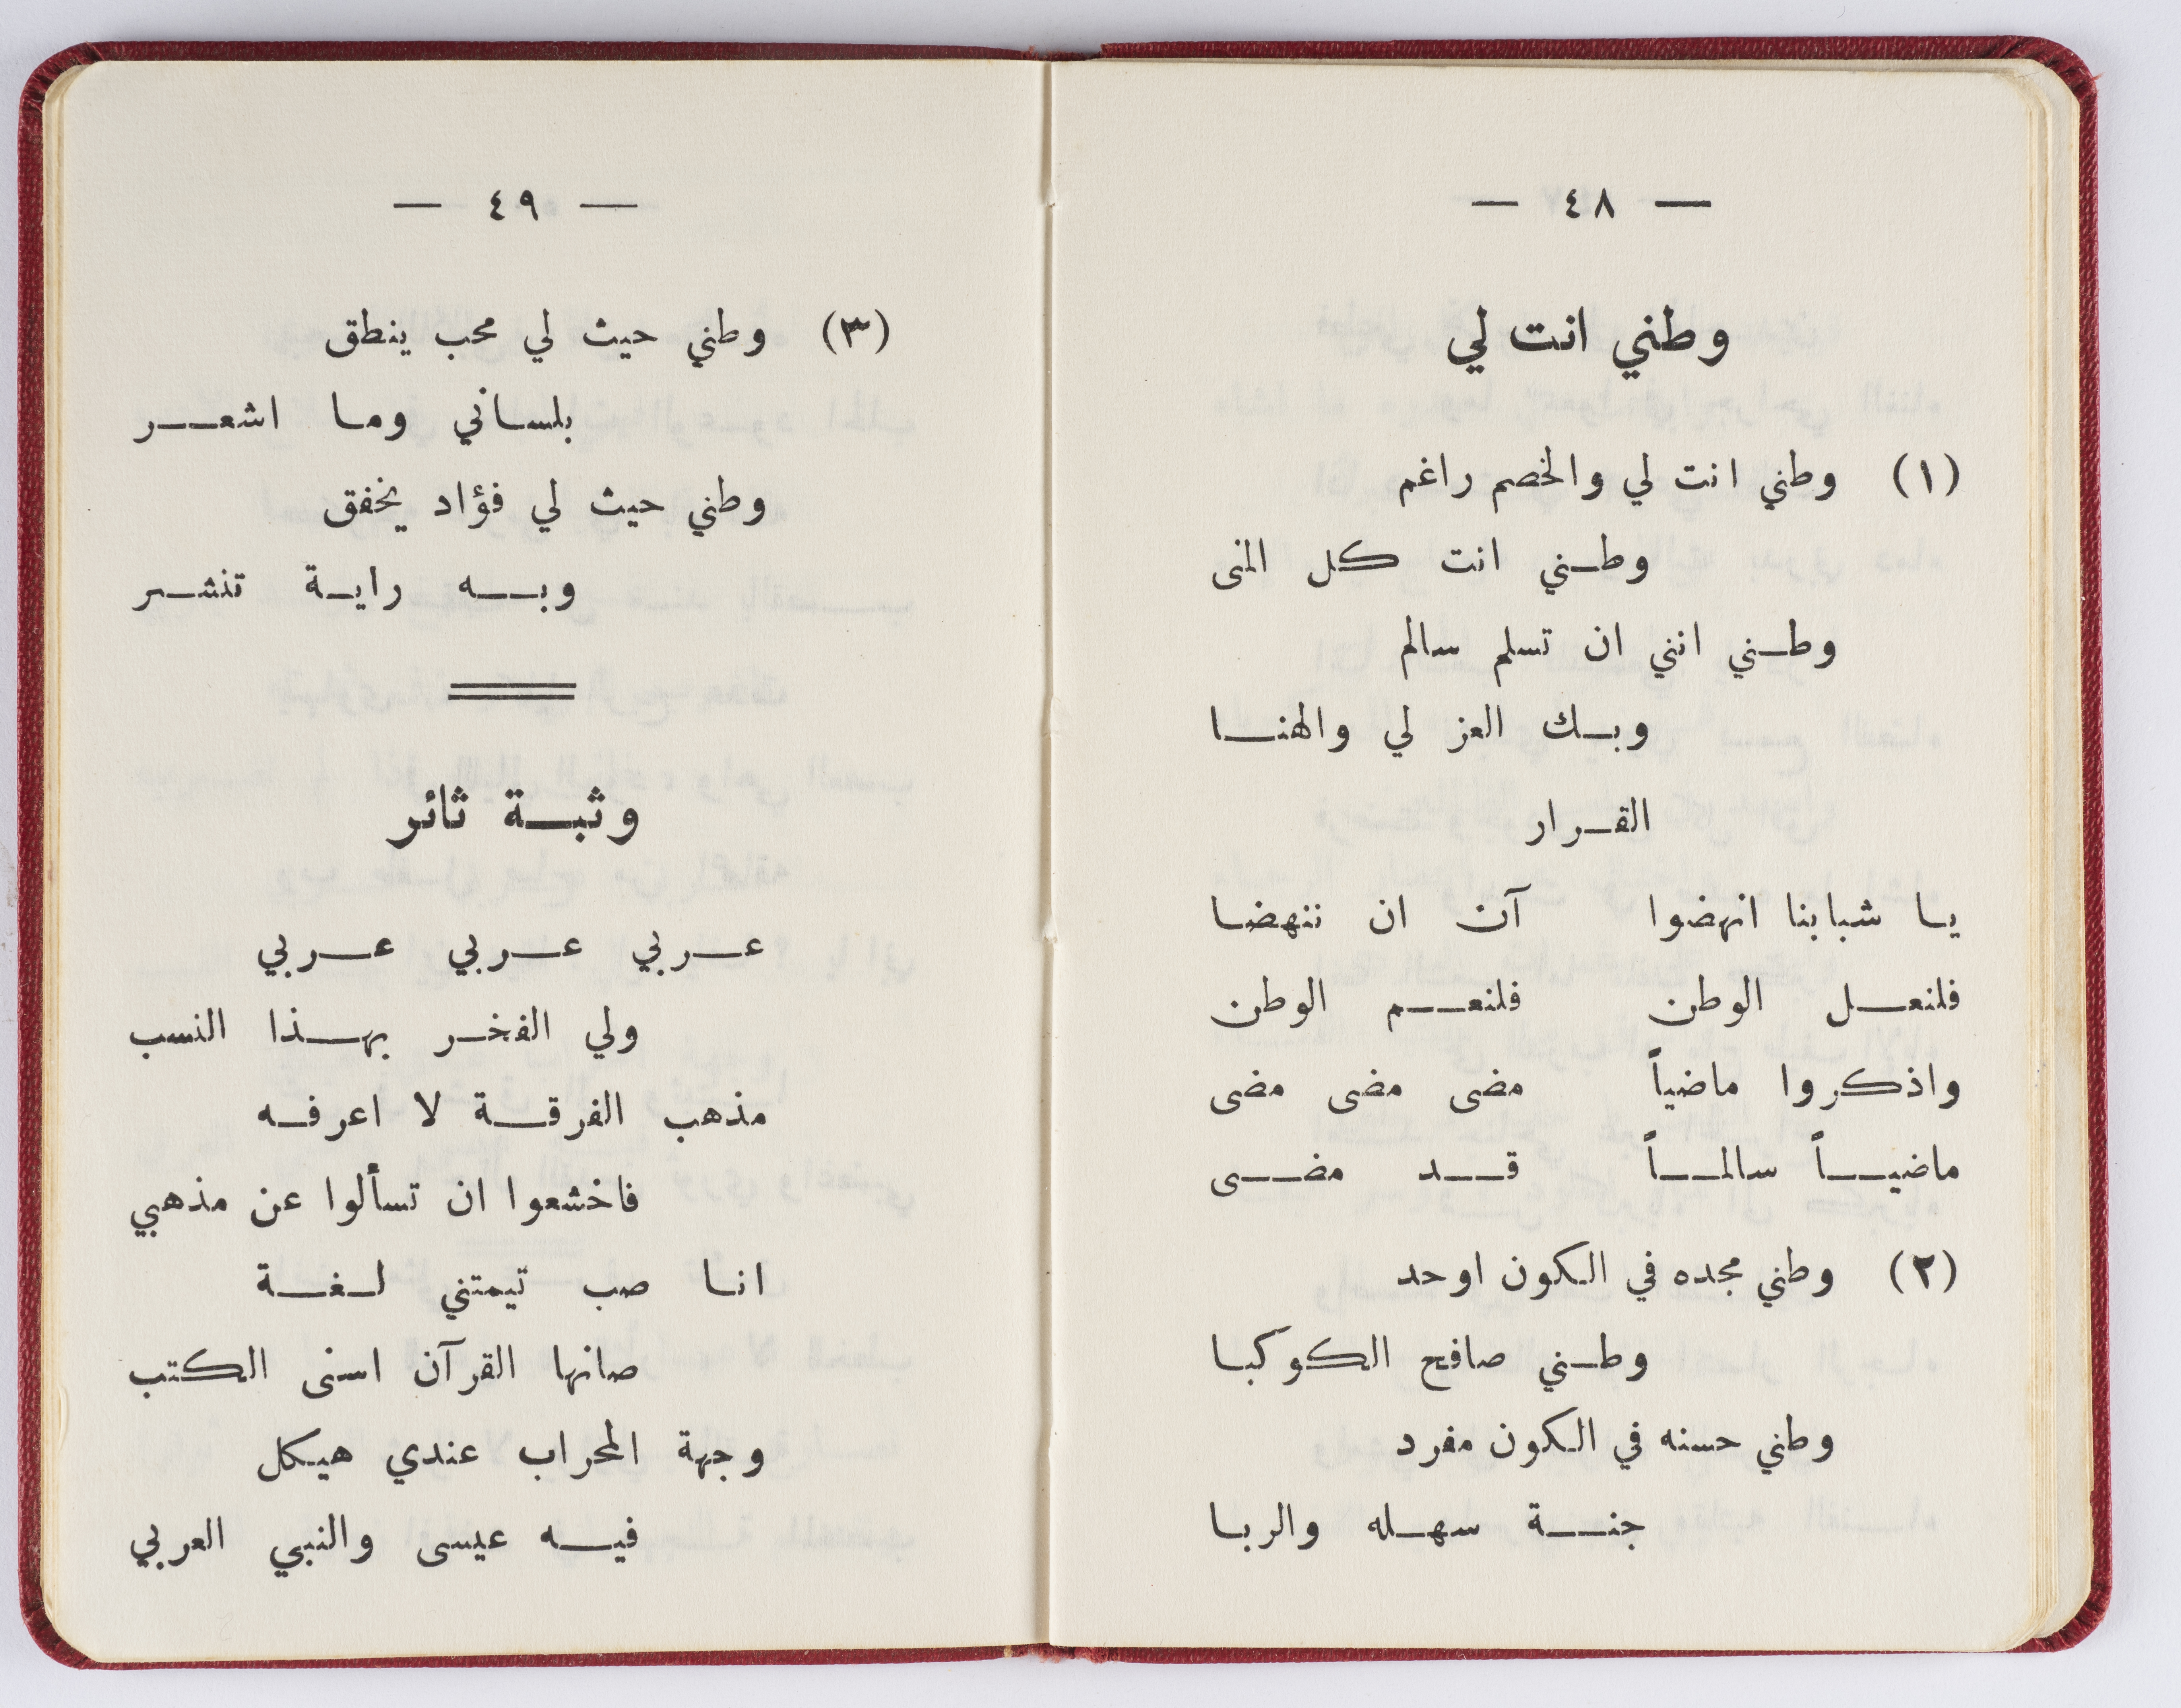 — ٤٨ —
وطني انت لي
(١) وطني انت لي والخصم راغم
وطني انت كل المنى
وطني انني ان تسلم سالم
وبك العز لي والهنا
القرار
يا شبابنا انهضوا آن ان ننهضا
فلنعل الوطن فلنعم الوطن
واذكروا ماضياً مضى مضى مضى
ماضياً سالماً قد مضى
(٢) وطني مجده في الكون اوحد
وطني صافح الكوكبا
وطني حسنه في الكون مفرد
جنة سهله والربا
— ٤٩ —
(٣) وطني حيث لي محب ينطق
بلساني وما اشعر
وطني حيث لي فؤاد يخفق
وبه راية تنشر
وثبة ثائر
عربي عربي عربي
ولي الفخر بهذا النسب
مذهب الفرقة لا اعرفه
فاخشعوا ان تسألوا عن مذهبي
انا صب تيمتني لغة
صانها القرآن اسنى الكتب
وجهة المحراب عندي هيكل
فيه عيسى والنبي العربي